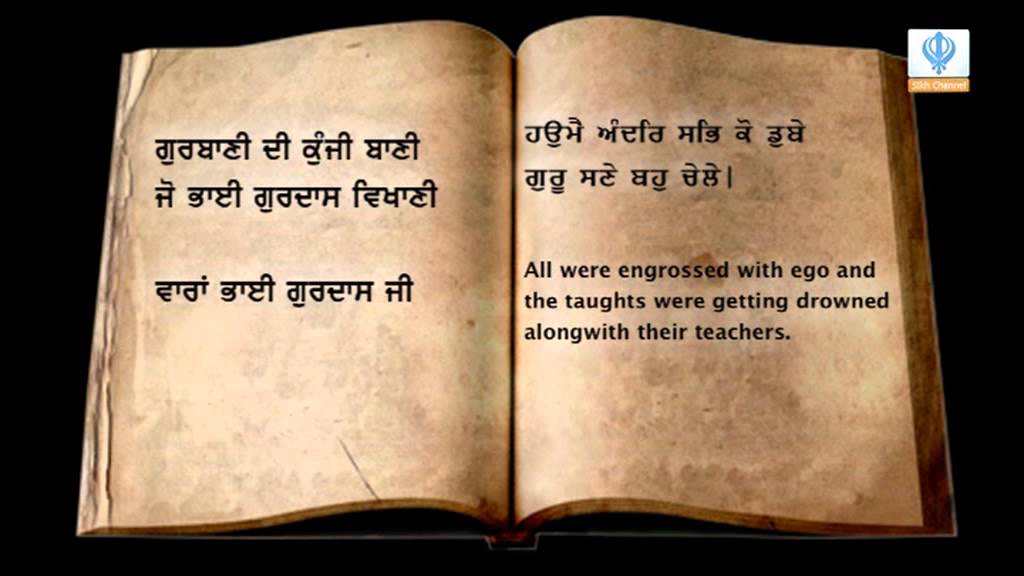 ਗੁਰਬਾਣੀ ਦੀ ਕੁੰਜੀ ਬਾਣੀ
ਜੋ ਭਾਈ ਗੁਰਦਾਸ ਵਿਖਾਣੀ
ਵਾਰਾਂ ਭਾਈ ਗੁਰਦਾਸ ਜੀ
ਹਉਮੈ ਅੰਦਰਿ ਸਭਿ ਕੋ ਡੁਬੇ
ਗੁਰੂ ਸਣੇ ਬਹੁ ਚੇਲੇ|
All were engrossed with ego and
the taughts were getting drowned
alongwith their teachers.
Sikh Channel